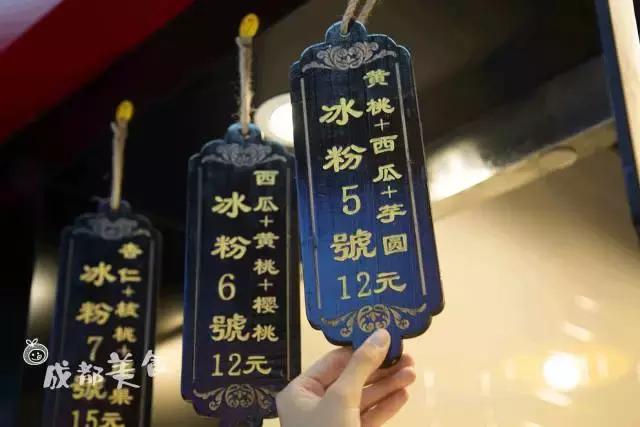 冰粉5號
黄桃+西瓜+芋圆
12元
冰粉6號
西瓜+黄桃+樱桃
12元
冰粉7號
杏仁+核桃
果
15元
成都美食